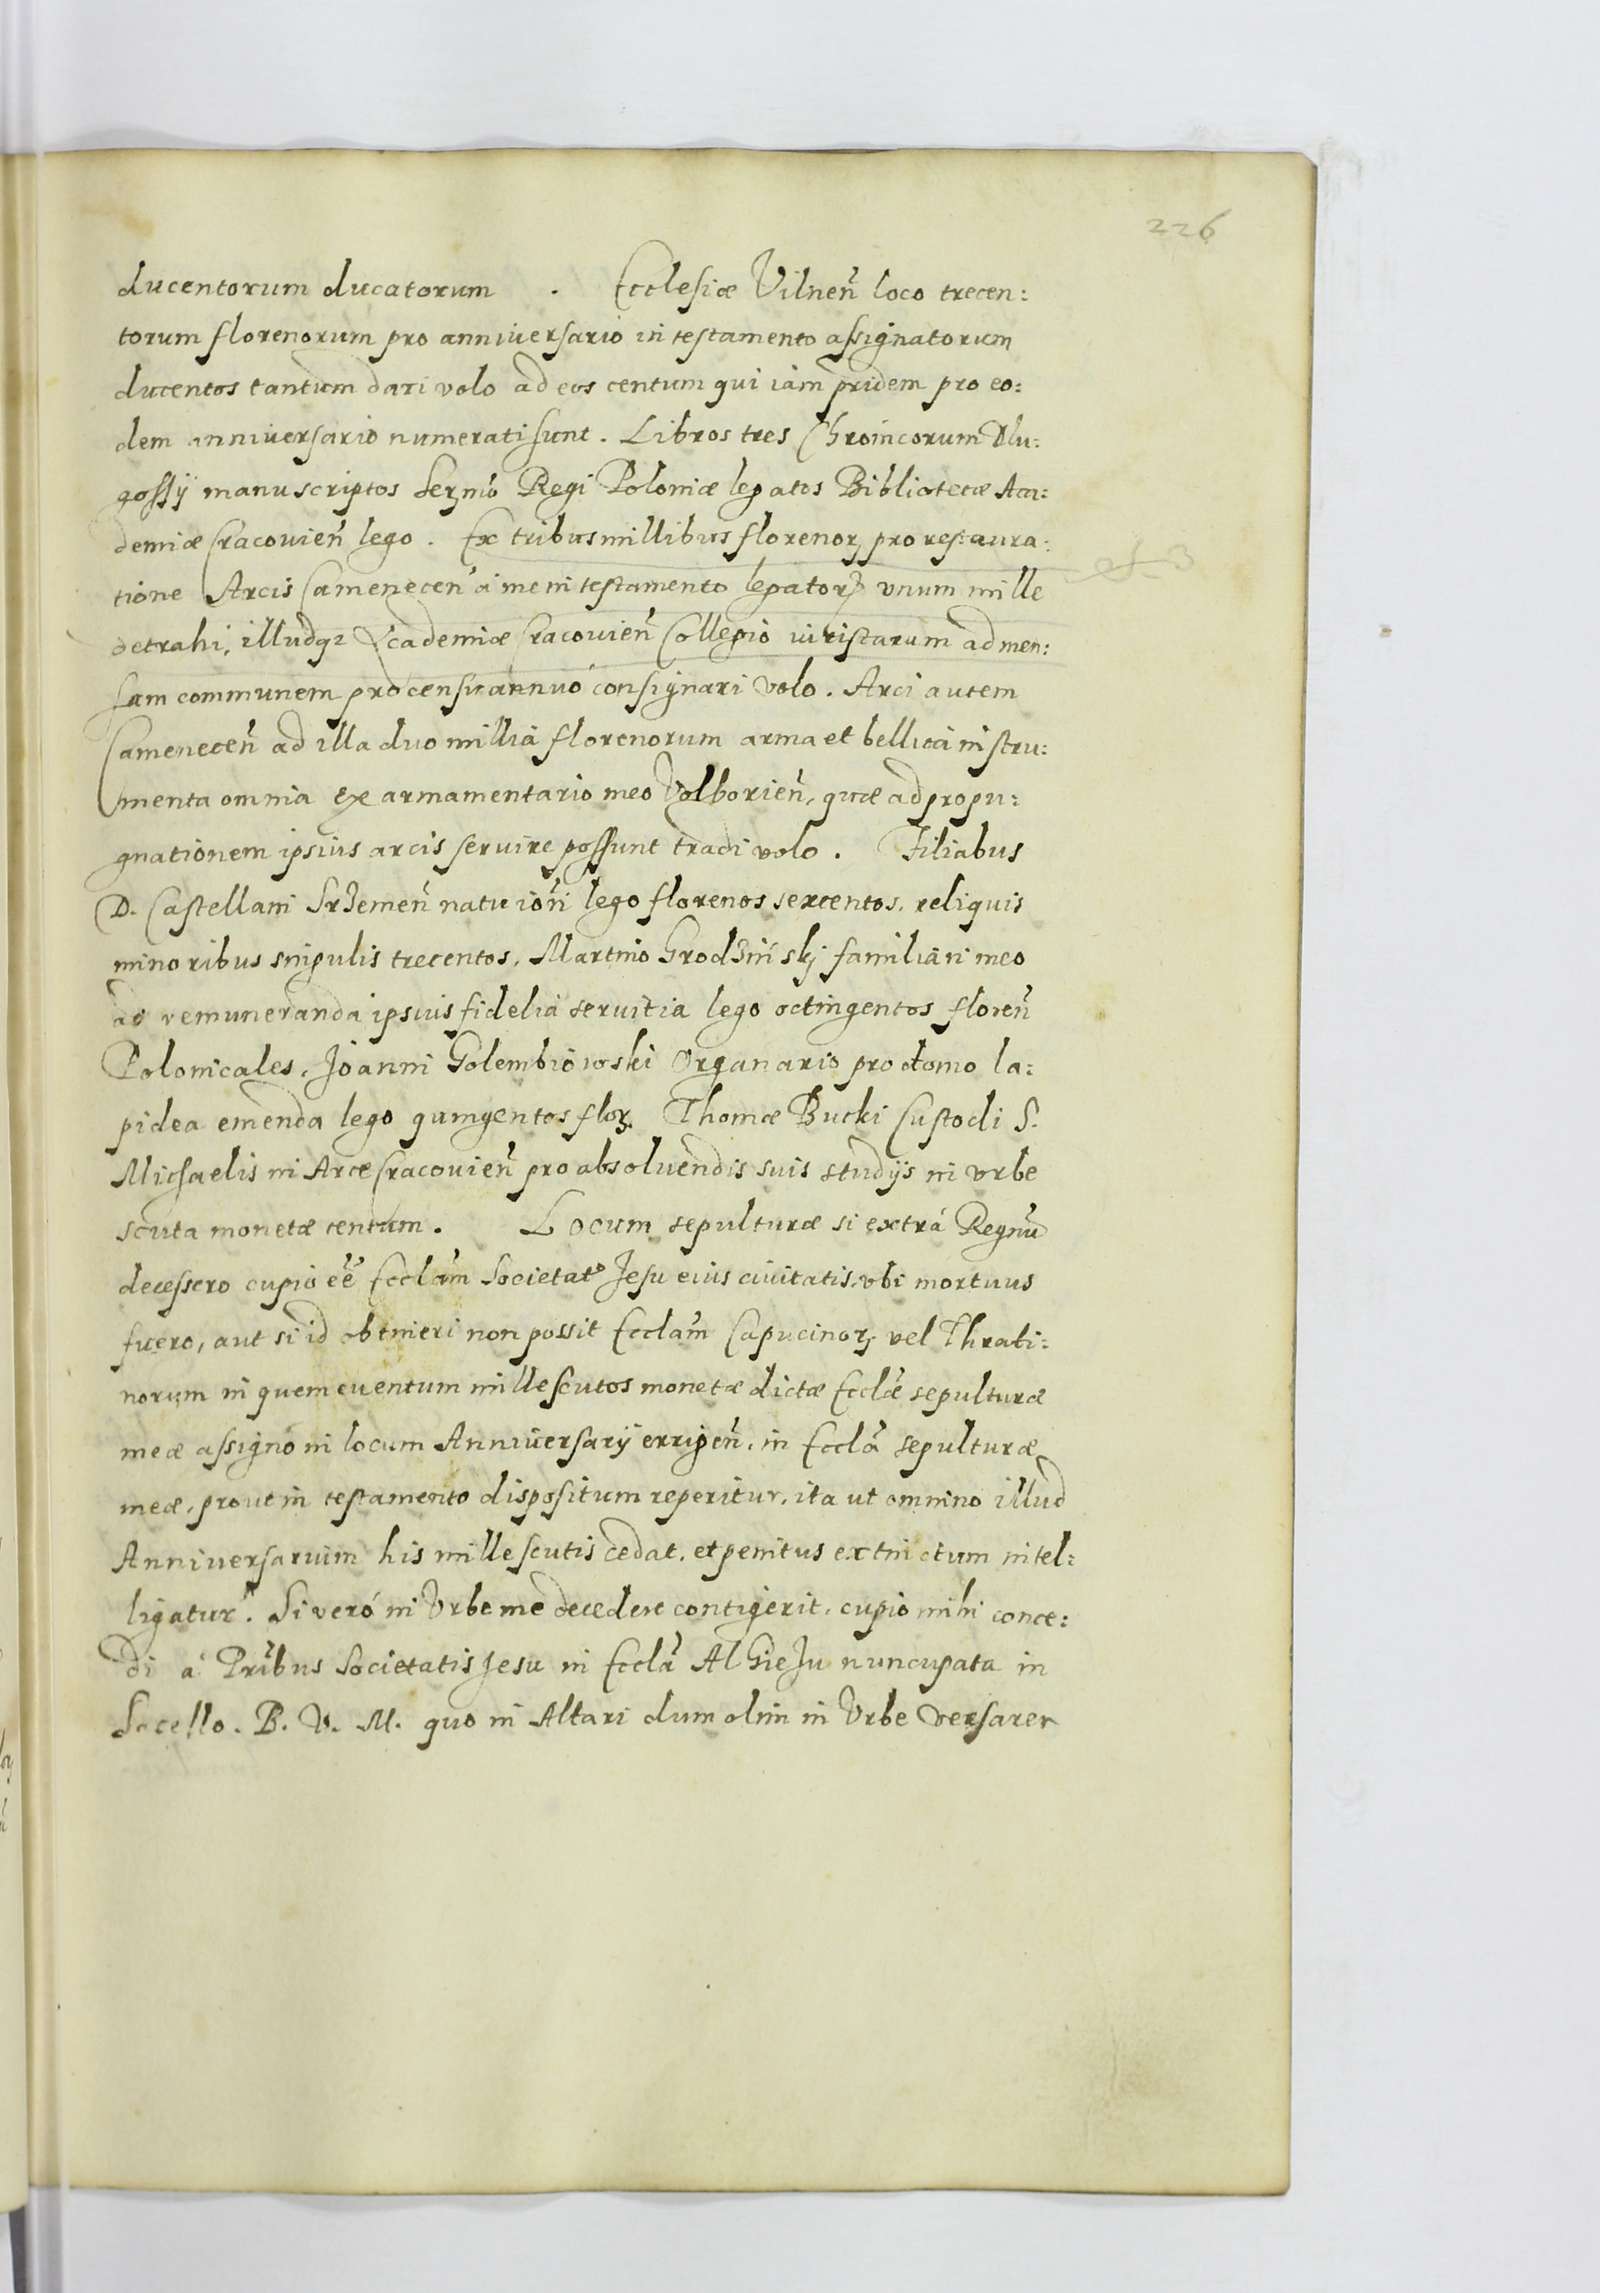 226
ducentorum ducatorum . Ecclesiæ Vilneñ loco trecen:
torum florenorum pro anniuersario in testamento assignatorum
ducentos tantum dari volo ad eos centum qui iam pridem pro eo:
dem anniuersario numerati sunt. Libros tres Chronicorum Dlu:
gossÿ manuscriptos Serm̃o Regi Poloniæ legatos Bibliotecæ Aca:
demiæ Cracouieñ lego. Ex tribus millibus florenorꝫ pro restaura:
tione Arcis Cameneceñ à me in testamento legatorꝫ vnum mille
detrahi, illudqꝫ Academiæ Cracouieñ Collegio iuristarum ad men:
sam communem pro censu annuo consignari volo. Arci autem
Cameneceñ ad illa duo millia florenorum arma et bellica instru:
menta omnia ex armamentario meo Volborieñ, quæ ad propu:
gnationem ipsius arcis seruire possunt tradi volo. Filiabus
D. Castellani Srzemeñ natu ioñi lego florenos sexcentos, reliquis
minoribus singulis trecentos, Martino Grodzińskj familiari meo
ad remuneranda ipsius fidelia seruitia lego octingentos floreñ
Polonicales, Joanni Golembiowski Organario pro domo la:
pidea emenda lego quingentos florꝫ. Thomæ Bucki Custodi S.
Michaelis in Arce Cracouieñ pro absoluendis suis studijs in vrbe
scuta monetæ centum. Locum sepulturæ si extrá Regnũ
decessero cupio eẽ Ecclãm Societatꝰ Jesu eius ciuitatis, vbi mortuus
fuero, aut si id obtineri non possit Ecclãm Capucinorꝫ vel Thrati:
norum in quem euentum mille scutos monetæ dictæ Ecclæ̃ sepulturæ
meæ assigno in locum Anniuersarÿ errigeñ, in Ecclã sepulturæ
meæ, prout in testamento dispositum reperitur, ita ut omnino illud
Anniuersarium his mille scutis cedat, et penitus extinctum intel:
ligatur. Si veró in Vrbe me decedere contigerit, cupio mihi conce:
di á Pr̃ibus Societatis Jesu in Ecclã Al Gieju nuncupata in
Sacello. B. V. M. quo in Altari dum olim in Vrbe versarer